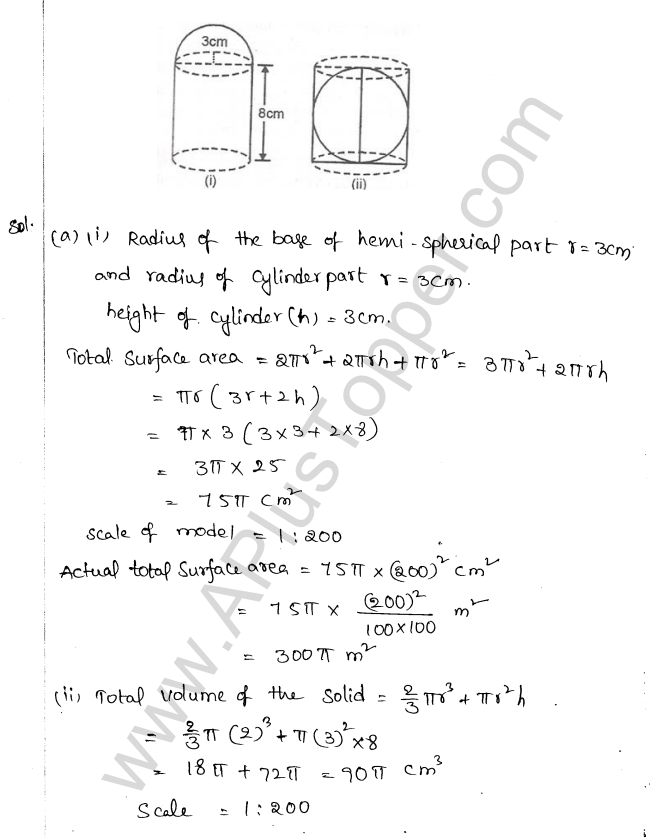 3cm
8cm
(i) (ii)
Sol. (a) (i) Radius of the base of hemi-spherical part r = 3cm
and radius of cylinder part r = 3cm.
height of cylinder (h) = 3cm.
Total Surface area = 2πr² + 2πrh + πr² = 3πr² + 2πrh
= πr (3r + 2h)
= π × 3 (3×3 + 2×8)
= 3π × 25
= 75π cm²
Scale of model = 1 : 200
Actual total surface area = 75π × (200)² cm²
= 75π × (200)² / 100×100 m²
= 300π m²
(ii) Total Volume of the Solid = 2/3 πr³ + πr²h.
= 2/3 π (2)³ + π(3)² × 8
= 18π + 72π = 90π cm³
Scale = 1 : 200
www.APlusTopper.com